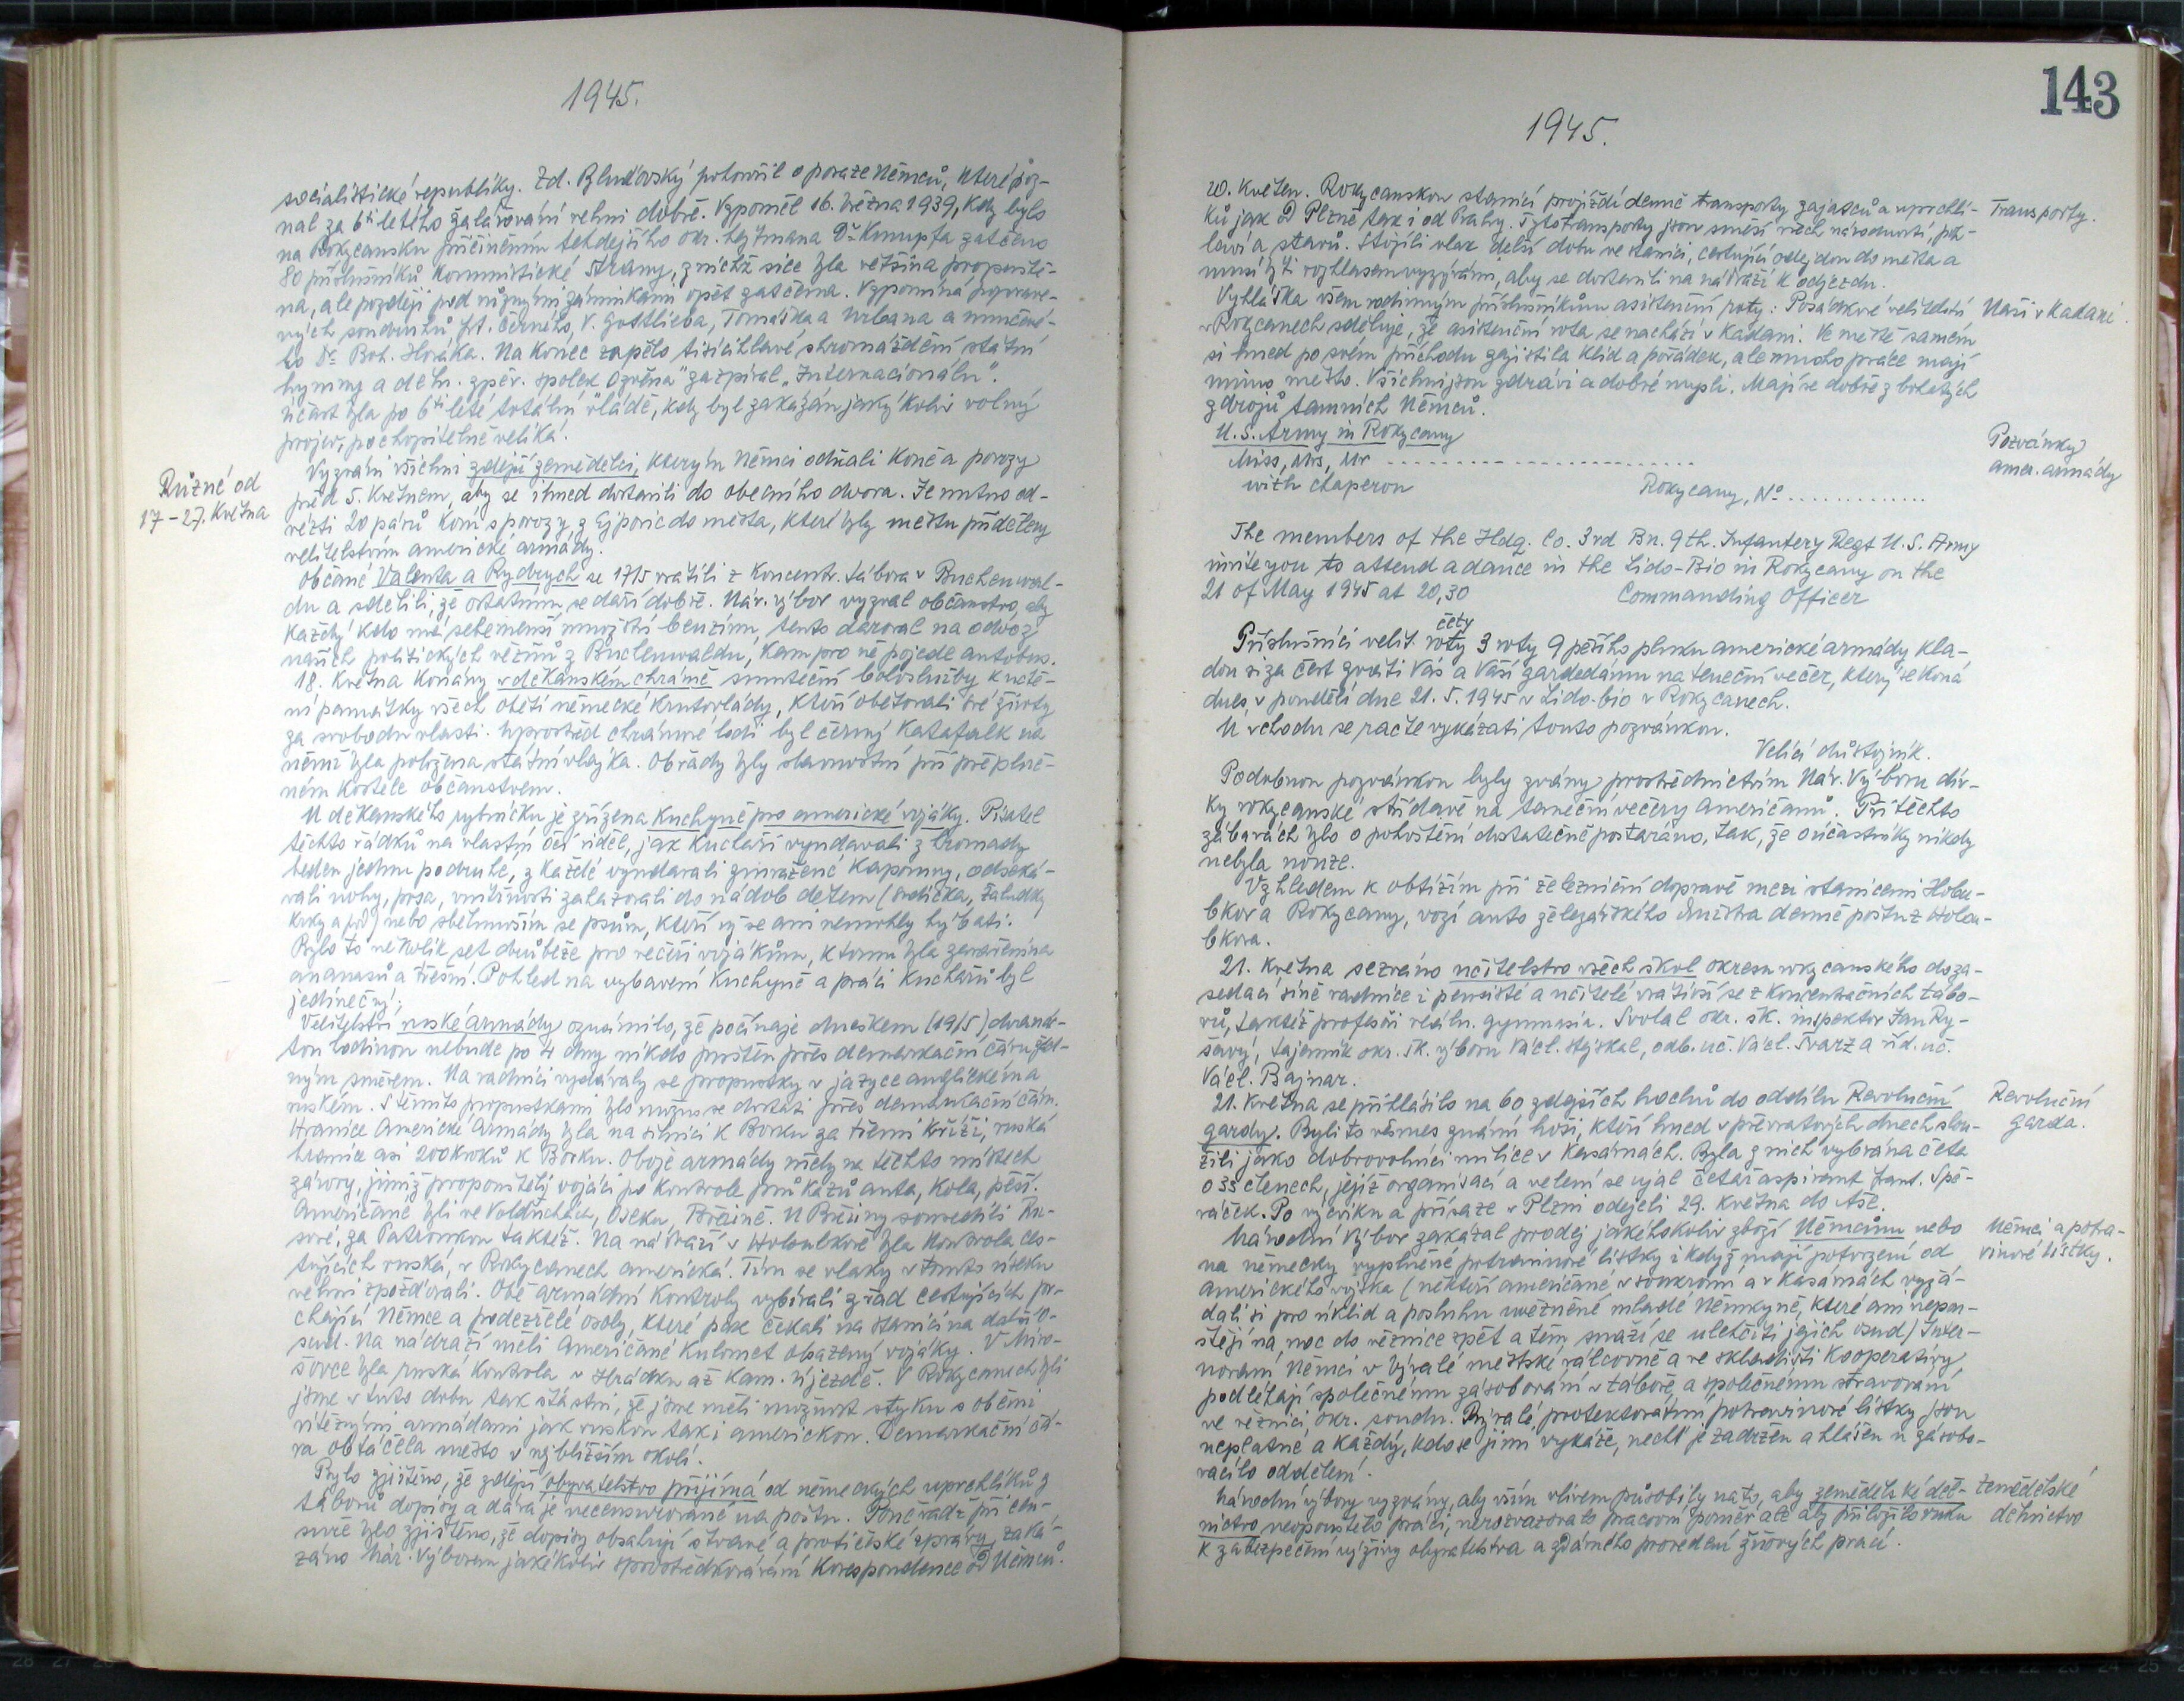 1945.
socialistické republiky. Zd. Bludovský pohovořil o porážce Němců, které poz-
nal za 6ti letého žalářování velmi dobře. Vzpoměl 16. března 1939, kdy bylo
na Rokycansku přičiněním tehdejšího okr. hejtmana Dr Knupfa zatčeno
80 příslušníků komunistické strany, z nichž sice byla většina propuště-
na, ale později pod různými záminkami opět zatčena. Vzpomíná poprave-
ných soudruhů Fr. Černého, V. Gottlieba, Tomáška a Urbana a umučené-
ho Dr. Boh. Horáka. Na konec zapělo tisícihlavé shromáždění státní
hymny a děln. zpěv. spolek "Ozvěna" zazpíval "Internacionálu".
Účast byla po 6ti leté totální vládě, kdy byl zakázán jakýkoliv volný
projev, pochopitelně veliká.
Různé od
17-27. května
Vyzváni všichni zdejší zemědělci, kterým Němci odňali koně a povozy
před 5. květnem, aby se ihned dostavili do obecního dvora. Je nutno od-
vézti 20 párů koní s povozy z Ejpovic do města, které byly městu přiděleny
velitelstvím americké armády.
Občané Valenta a Rydrych se 17/5 vrátili z koncentr. tábora v Buchenwal-
du a sdělili, že ostatním se daří dobře. Nár. výbor vyzval občanstvo, aby
každý kdo má sebemenší množství benzinu, tento daroval na odvoz
našich politických vězňů z Buchenwaldu, kam pro ně pojede autobus.
18. května konány v děkanském chrámě smuteční bohoslužby k uctě-
ní památky všech obětí německé krutovlády, kteří obětovali své životy
za svobodu vlasti. Uprostřed chrámové lodi byl černý katafalk na
němž byla položena státní vlajka. Obřady byly slavnostní při přeplně-
ném kostele občanstvem.
U děkanského rybníčku je zřízena kuchyně pro americké vojáky. Pisatel
těchto řádků na vlastní oči viděl, jak kuchaři vyndavali z hromady
beden jednu po druhé, z každé vyndavali zmražené kapouny, odseká-
vali nohy, prsa, vnitřnosti zahazovali do nádob dětem (srdíčka, žaludky
krky a pod) nebo sběhnuvším se psům, kteří již se ani nemohly hýbati.
Bylo to několik set drůbeže pro večeři vojákům, k tomu byla zavařenina
ananasů a třešní. Pohled na vybavení kuchyně a práci kuchařů byl
jedinečný.
Velitelství ruské armády oznámilo, že počínaje dneškem (19/5) dvanác-
tou hodinou nebude po 4 dny nikdo puštěn přes demarkační čáru žád-
ným směrem. Na radnici vydávaly se propustky v jazyce anglickém a
ruském. S těmito propustkami bylo možno se dostati přes demarkační čáru.
Hranice Americké Armády byla na silnici k Borku za třemi kříži, ruská
hranice asi 200 kroků k Borku. Oboje armády měly na těchto místech
závory, jimiž propouštěli vojáci po kontrole průkazů auta, kola, pěší.
Američané byli ve Volduchách, Oseku, Březině. U Březiny sousedili Ru-
sové, za Patronkou taktéž. Na nádraží v Holoubkově byla kontrola ces-
tujících ruská, v Rokycanech americká. Tím se vlaky v tomto úseku
velmi zpožďovali. Obě armádní kontroly vybírali z řad cestujících pr-
chající Němce a podezřelé osoby, které pak čekali na stanici na další o-
sud. Na nádraží měli Američané kulomet obsazený vojáky. V Miro-
šovce byla ruská kontrola v Hrádku až Kam. Újezdě. V Rokycanech byli
jsme v tuto dobu tak šťastni, že jsme měli možnost styku s oběmi
vítěznými armádami jak ruskou tak i americkou. Demarkační čá-
ra obtáčela město v nejbližším okolí.
Bylo zjištěno, že zdejší obyvatelstvo přijímá od německých uprchlíků z
táborů dopisy a dává je necensurované na poštu. Poněvadž při cen-
suře bylo zjištěno, že dopisy obsahují štvavé a protičeské zprávy, zaká-
záno Nár. Výborem jakékoliv zprostředkovávání korespondence od Němců.
143
1945.
20. květen. Rokycanskou stanicí projíždí denně transporty zajatců a uprchlí-
Transporty.
ků jak od Plzně tak i od Prahy. Tyto transporty jsou směsí všech národností, poh-
laví a stavů. Stojíli vlak delší dobu ve stanici, cestující odejdou do města a
musí býti rozhlasem vyzýváni, aby se dostavili na nádraží k odjezdu.
Vyhláška všem rodinným příslušníkům asistenční roty: Posádkové velitelství
Naši v Kadani.
v Rokycanech sděluje, že asistenční rota se nachází v Kadani. Ve městě samém
si hned po svém příchodu zajistila klid a pořádek, ale mnoho práce mají
mimo město. Všichni jsou zdrávi a dobré mysli. Mají se dobře z bohatých
zdrojů tamních Němců.
U.S. Army in Rokycany
Pozvánky
amer. armády
Miss, Mrs, Mr ---------------------------
with chaperon
Rokycany, No .............
The members of the Hdq. Co. 3rd Bn. 9th. Infantery Regt U.S. Army
invite you to attend a dance in the Lido-Bio in Rokycany on the
21 of May 1945 at 20,30
Commanding Officer
čety
Příslušníci velit. roty 3 roty 9 pěšího pluku americké armády kla-
dou si za čest zváti Vás a Vaši gardedámu na taneční večer, který se koná
dnes, v pondělí dne 21. 5. 1945 v Lido-bio v Rokycanech.
U vchodu se račte vykázati touto pozvánkou.
Velící důstojník.
Podobnou pozvánkou byly zvány prostřednictvím Nár. Výboru dív-
ky rokycanské střídavě na taneční večery američanů. Při těchto
zábavách bylo o pohoštění dostatečně postaráno, tak, že o účastníky nikdy
nebyla nouze.
Vzhledem k obtížím při železniční dopravě mezi stanicemi Holou-
bkov a Rokycany, vozí auto želežářského družstva denně poštu z Holou-
bkova.
21. května sezváno učitelstvo všech škol okresu rokycanského do za-
sedací síně radnice i pensisté a učitelé vrátivší se z koncentračních tábo-
rů, taktéž profesoři reáln. gymnasia. Svolal okr. šk. inspektor Jan Ry-
šavý, tajemník okr. šk. výboru Václ. Hejskal, odb. uč. Václ. Švarz a říd. uč.
Václ. Bajnar.
21. května se přihlásilo na 60 zdejších hochů do oddílu Revoluční
Revoluční
garda.
gardy. Byli to vesměs známí hoši, kteří hned v převratových dnech slou-
žili jako dobrovolníci milice v kasárnách. Byla z nich vybrána četa
o 33 členech, jejíž organisaci a velení se ujal četař aspirant Frant. Spě-
váček. Po výcviku a přísaze v Plzni odejeli 29. května do Aše.
Národní Výbor zakázal prodej jakéhokoliv zboží Němcům nebo
Němci a potra-
vinové lístky.
na německy vyplněné potravinové lístky i když mají potvrzení od
amerického vojska (někteří američané v soukromí a v kasárnách vyžá-
dali si pro úklid a posluhu uvězněné mladé Němkyně, které ani nepou-
štějí na noc do věznice zpět a tím snaží se ulehčiti jejich osud) Inter-
novaní Němci v bývalé městské válcovně a ve skladišti Kooperativy
podléhají společnému zásobování v táboře, a společnému stravování
ve věznici okr. soudu. Bývalé protektorátní potravinové lístky jsou
neplatné a každý, kdo se jimi vykáže, nechť je zadržen a hlášen u zásobo-
vacího oddělení.
Národní výbory vyzvány, aby vším vlivem působily na to, aby zemědělské děl-
Zemědělské
dělnictvo
nictvo neopouštělo práci, nerozvazovalo pracovní poměr ale aby přiložilo ruku
k zabezpečení výživy obyvatelstva a zdárného provedení žňových prací.